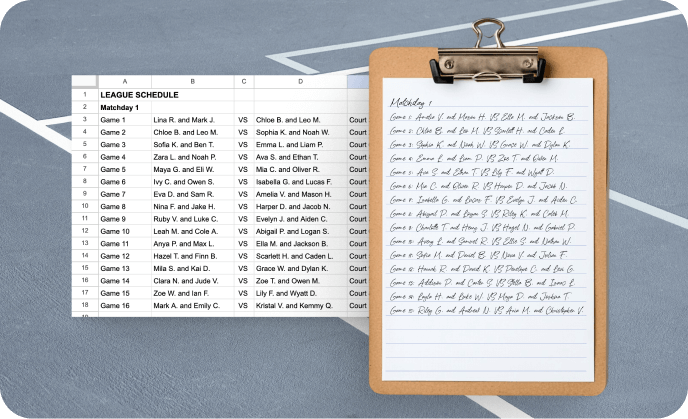 A B C D
1 LEAGUE SCHEDULE
2 Matchday 1
3 Game 1 Lina R. and Mark J. VS Chloe B. and Leo M. Court
4 Game 2 Chloe B. and Leo M. VS Sophia K. and Noah W. Court
5 Game 3 Sofia K. and Ben T. VS Emma L. and Liam P. Court
6 Game 4 Zara L. and Noah P. VS Ava S. and Ethan T. Court
7 Game 5 Maya G. and Eli W. VS Mia C. and Oliver R. Court
8 Game 6 Ivy C. and Owen S. VS Isabella G. and Lucas F. Court
9 Game 7 Eva D. and Sam R. VS Amelia V. and Mason H. Court
10 Game 8 Nina F. and Jake H. VS Harper D. and Jacob N. Court
11 Game 9 Ruby V. and Luke C. VS Evelyn J. and Aiden C. Court
12 Game 10 Leah M. and Cole A. VS Abigail P. and Logan S. Court
13 Game 11 Anya P. and Max L. VS Ella M. and Jackson B. Court
14 Game 12 Hazel T. and Finn B. VS Scarlett H. and Caden L. Court
15 Game 13 Mila S. and Kai D. VS Grace W. and Dylan K. Court
16 Game 14 Clara N. and Jude V. VS Zoe T. and Owen M. Court
17 Game 15 Zoe W. and Ian F. VS Lily F. and Wyatt D. Court
18 Game 16 Mark A. and Emily C. VS Kristal V. and Kemmy Q. Court
Matchday 1
Game 1: Amelia V. and Mason H. VS Ella M. and Jackson B.
Game 2: Chloe B. and Leo M. VS Scarlett H. and Caden L.
Game 3: Sophia K. and Noah W. VS Grace W. and Dylan K.
Game 4: Emma L. and Liam P. VS Zoe T. and Owen M.
Game 5: Ava S. and Ethan T. VS Lily F. and Wyatt D.
Game 6: Mia C. and Oliver R. VS Harper D. and Jacob N.
Game 7: Isabella G. and Lucas F. VS Evelyn J. and Aiden C.
Game 8: Abigail P. and Logan S. VS Riley K. and Caleb M.
Game 9: Charlotte T. and Henry J. VS Hazel N. and Gabriel D.
Game 10: Avery L. and Samuel R. VS Ellie S. and Nathan W.
Game 11: Sofia M. and Daniel B. VS Nova V. and Julian F.
Game 12: Hannah R. and David K. VS Penelope C. and Levi G.
Game 13: Addison D. and Carter S. VS Stella B. and Isaac L.
Game 14: Layla H. and Luke W. VS Maya D. and Joshua T.
Game 15: Riley G. and Andrew N. VS Aria M. and Christopher V.